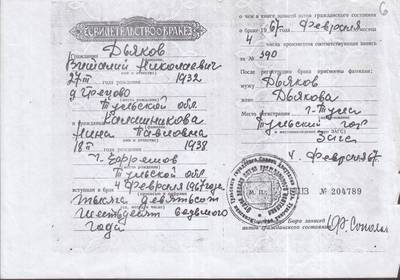 СВИДЕТЕЛЬСТВО О БРАКЕ
Гражданин Дьяков
Виталий Николаевич
имя и отчество
27/III 1932
года рождения
д. Грецово
место рождения
Тульской обл
Калашникова
Нина Павловна
имя и отчество
18/II года рождения 1938
г. Ефремов
место рождения
Тульской обл
вступили в брак 4 февраля 1967 года
тысяча девятьсот
шестьдесят седьмого
года
о чем в книге записей актов гражданского состояния
о браке 1967 года февраля
4 числа произведена соответствующая запись
за № 390
После регистрации брака присвоены фамилии:
мужу Дьяков
жене Дьякова
Место регистрации г. Тула
Тульский гор
Загс
4 февраля 67
М. П.
№ 204789
Бюро записей
актов гражданского состояния
6